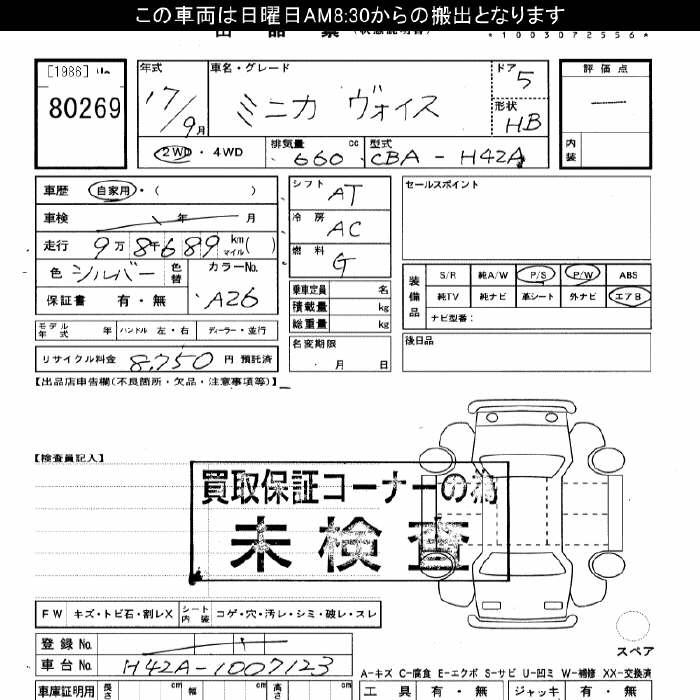 この車両は日曜日AM8:30からの搬出となります
*1003072556*
[1986]
80269
年式
17/9月
車名・グレード
ミニカ ヴォイス
ドア 5
形状 HB
評価点
内装
2WD・4WD
排気量 660 cc
型式 CBA-H42A
車歴 自家用・( )
車検 年 月
走行 9万8千689 km マイル( )
色 シルバー 色替
カラーNo. A26
保証書 有・無
シフト AT
冷房 AC
燃料 G
乗車定員 名
積載量 kg
総重量 kg
名変期限
月 日
セールスポイント
装備品
S/R 純A/W P/S P/W ABS
純TV 純ナビ 革シート 外ナビ エアB
ナビ型番:
後日品
モデル年式 年 ハンドル 左・右 ディーラー・並行
リサイクル料金 8,750 円 預託済
【出品店申告欄(不良箇所・欠品・注意事項等)】
【検査員記入】
買取保証コーナーの為
未検査
FW キズ・トビ石・割レX シート内装 コゲ・穴・汚レ・シミ・破レ・スレ
スペア
登録No.
車台No. H42A-1007123
A-キズ C-腐食 E-エクボ S-サビ U-凹ミ W-補修 XX-交換済
車庫証明用 長さ cm 幅 cm 高さ cm
工具 有・無 ジャッキ 有・無